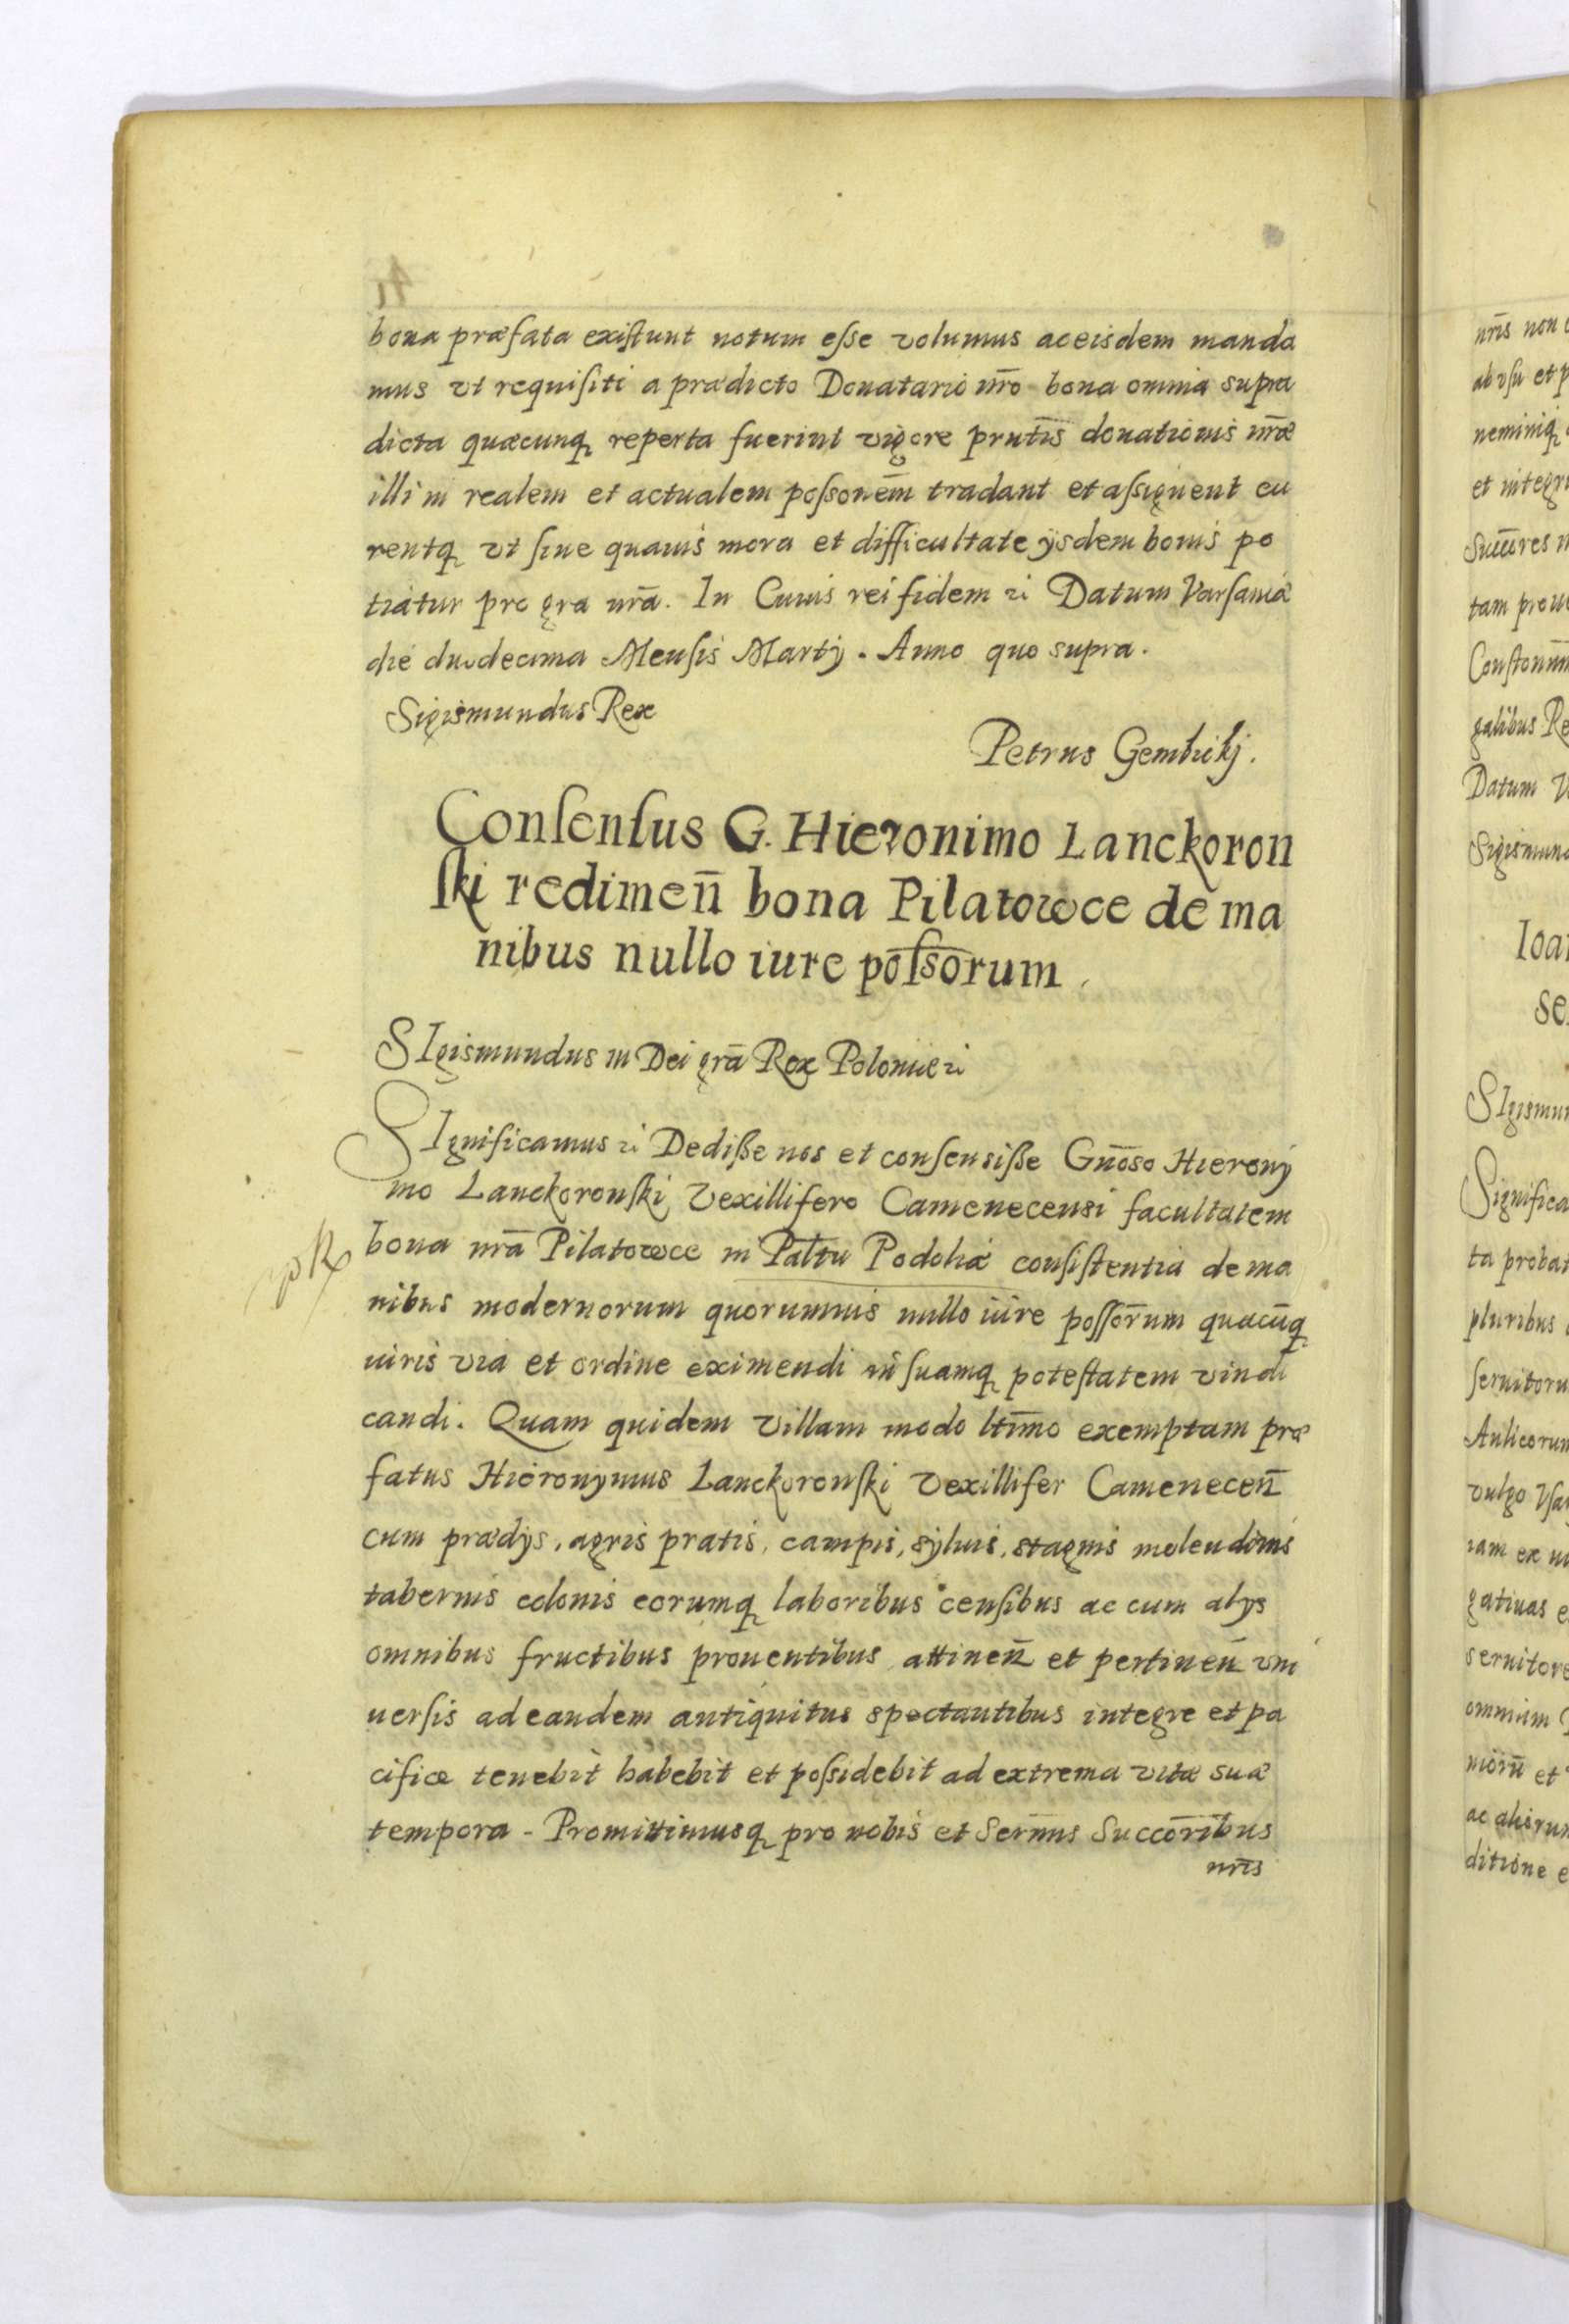 bona præfata existunt notum esse volumus ac eisdem manda
mus vt requisiti a prædicto Donatario nr̄o bona omnia supra
dicta quæcunq reperta fuerint vigore prntīs donationis nr̄æ
illi in realem et actualem possonēm tradant et assignent cu
rentq vt sine quauis mora et difficultate ijsdem bonis po
tiatur pro gra nrā. In Cuius rei fidem ꝛi Datum Varsauiæ
die duodecima Mensis Martij. Anno quo supra.
Sigismundus Rex
Petrus Gembickj.
Consensus G. Hieronimo Lanckoron
ski redimen̄ bona Pilatowce de ma
nibus nullo iure pōssōrum
SIgismundus III Dei grā Rex Poloniæ ꝛi
SIgnificamus ꝛi Dedisse nos et consensisse Gnōso Hierony
mo Lanckoronski Vexillifero Camenecensi facultatem
bona nrā Pilatowce in Paltū Podoliæ consistentia de ma
nibus modernorum quorumuis nullo iure possōrum quacūq
iuris via et ordine eximendi in suamq potestatem vindi
candi. Quam quidem Villam modo ltīmo exemptam præ
fatus Hieronymus Lanckoronski Vexillifer Camenecen̄
cum prædys, agris pratis, campis, syluis, stagnis molendinis
tabernis colonis eorumq laboribus censibus ac cum alys
omnibus fructibus prouentibus attinen̄ et pertinen̄ vni
uersis ad eandem antiquitus spectantibus integre et pa
cifice tenebit habebit et possidebit ad extrema vitæ suæ
tempora - Promittimusq pro nobis et Sern̄nis Succōribus
nrīs